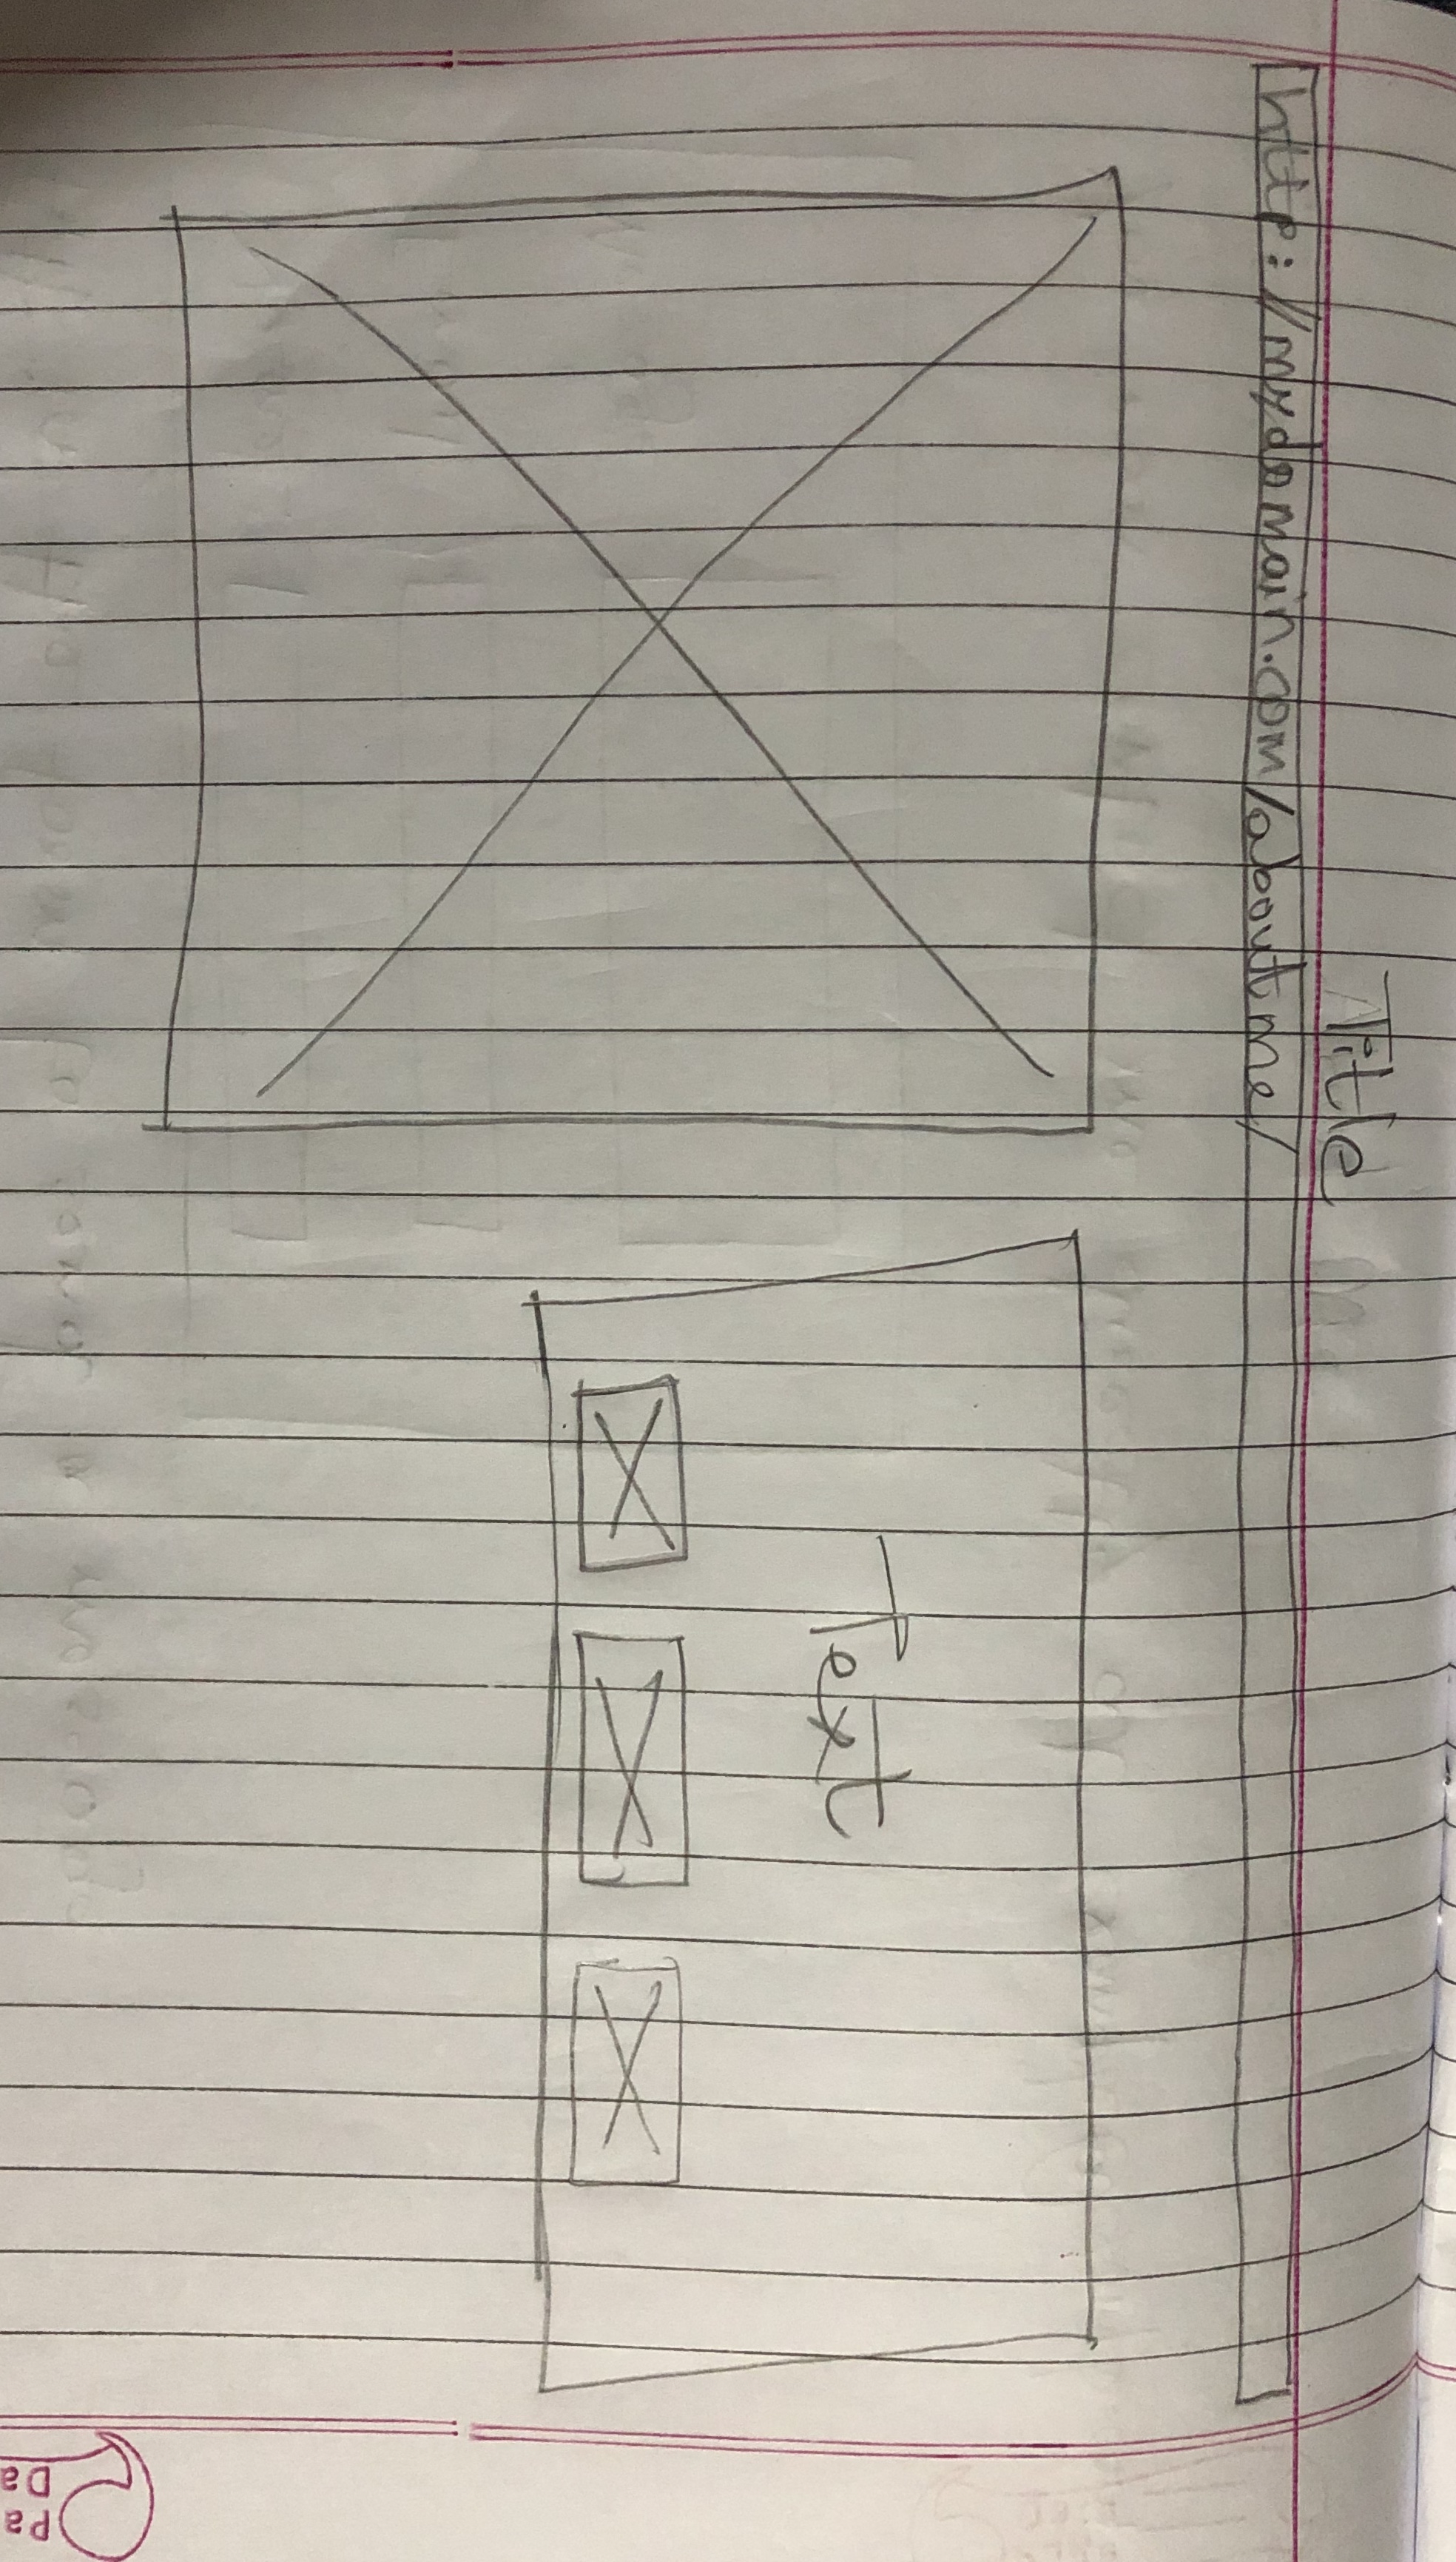 Title
http://mydomain.com/aboutme/
Text
Pa
Da